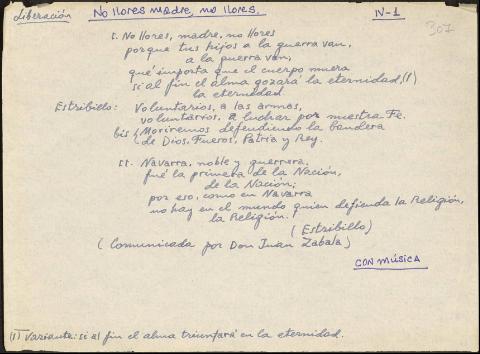 Liberación No llores madre, no llores. IV-1
307
I. No llores, madre, no llores
porque tus hijos a la guerra van,
a la guerra van,
qué importa que el cuerpo muera
si al fin el alma gozará la eternidad, (1)
la eternidad.
Estribillo: Voluntarios, a las armas,
voluntarios, a luchar por nuestra Fe.
bis { Moriremos defendiendo la bandera
de Dios, Fueros, Patria y Rey.
II. Navarra, noble y guerrera,
fué la primera de la Nación,
de la Nación;
por eso, como en Navarra
no hay en el mundo quien defienda la Religión,
la Religión.
(Estribillo)
(Comunicada por Don Juan Zabala)
CON MÚSICA
(1) Variante: si al fin el alma triunfará en la eternidad.